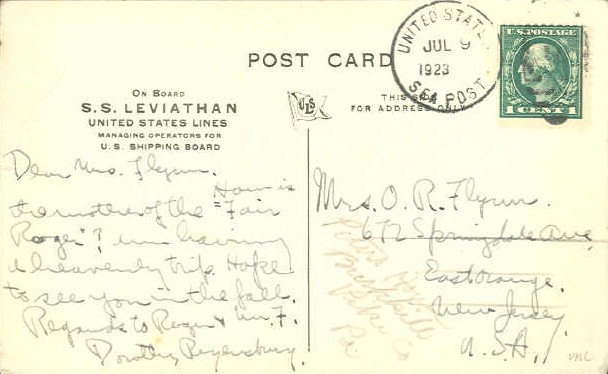 POST CARD
ON BOARD
S.S. LEVIATHAN
UNITED STATES LINES
MANAGING OPERATORS FOR
U. S. SHIPPING BOARD
USL
THIS SIDE
FOR ADDRESS ONLY
UNITED STATES
JUL 9
1923
SEA POST
U.S. POSTAGE
1 CENT 1
Dear Mrs. Flynn.
How is
the mother of the "Fair
Roger"? I'm having
a heavenly trip. Hope
to see you in the fall.
Regards to Roger & Mr. F.
Dorothy Regensburg.
Mrs. O. R. Flynn.
672 Springdale Ave
East Orange.
New Jersey
U.S.A.
Buck Hill
Co
Pa